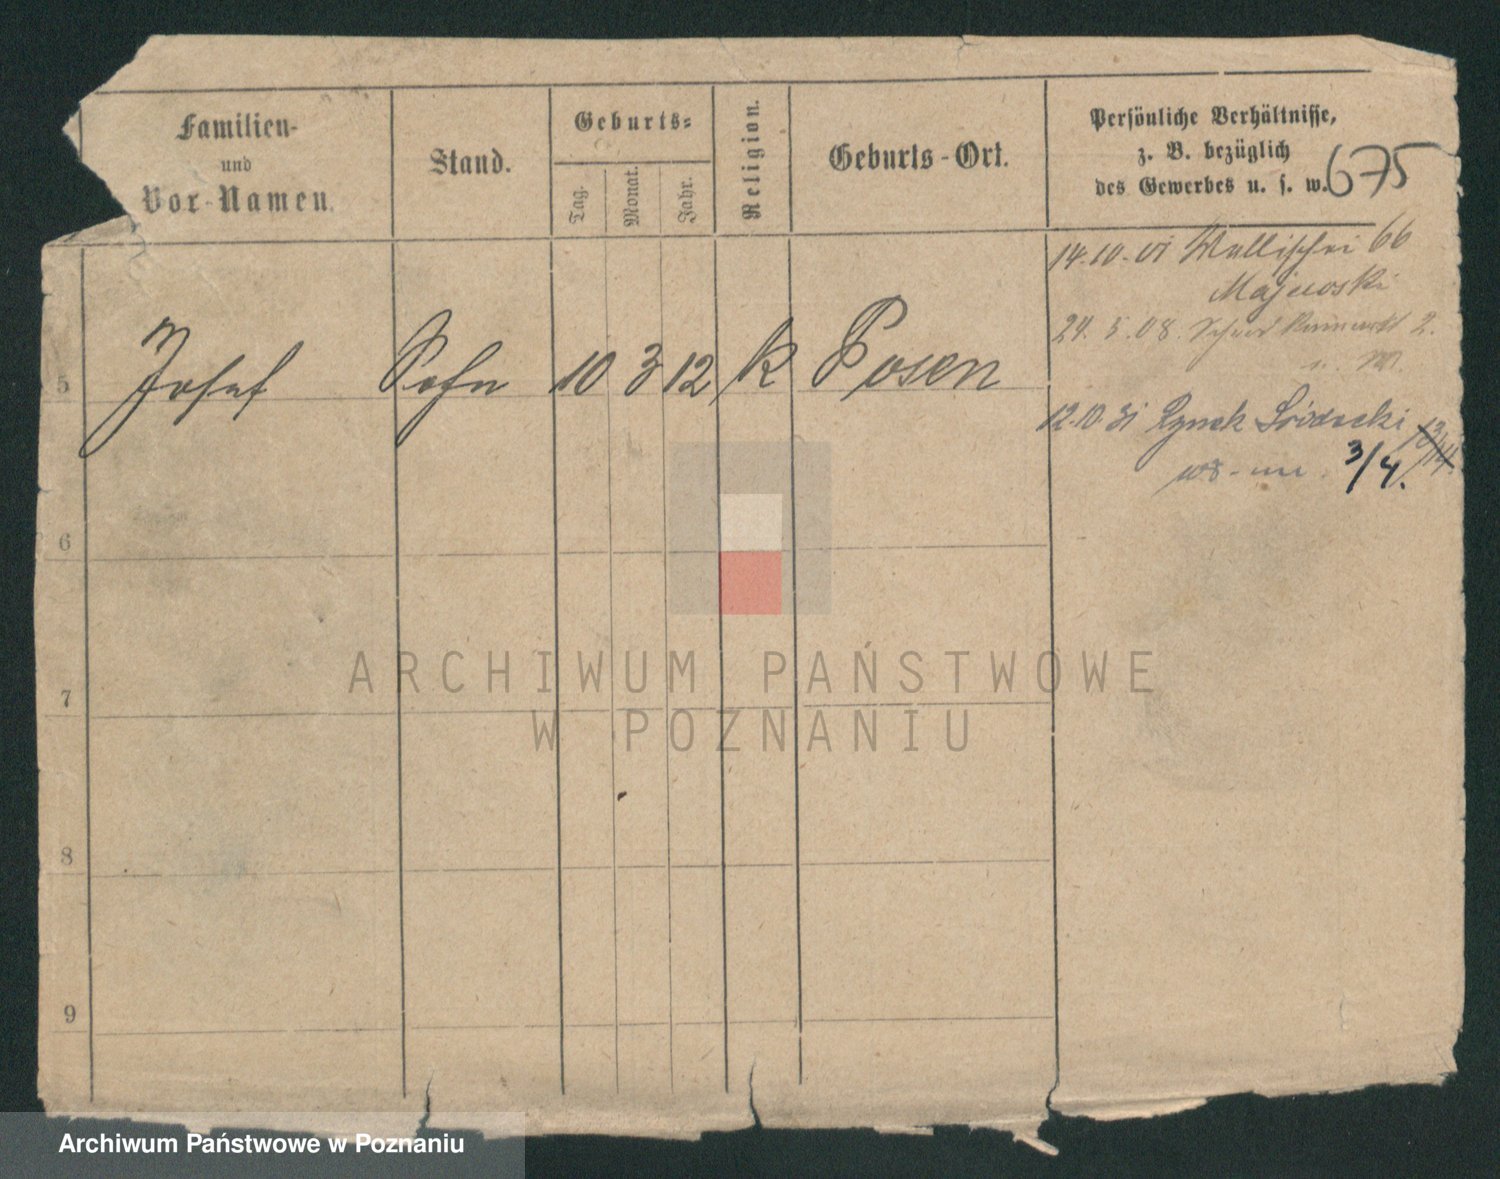 Familien-
und
Vor-Namen.
Stand.
Geburts=
Tag.
Monat.
Jahr.
Religion.
Geburts-Ort.
Persönliche Verhältnisse,
z. B. bezüglich
des Gewerbes u. s. w.
675
14.10.01 Wallischei 66
Majewski
24.5.08. 2.
5 Josef Sohn 10 3 12 k Posen
12.10.31 Rynek Śródecki 13/14
3/4.
6
7
8
9
ARCHIWUM PAŃSTWOWE
W POZNANIU
Archiwum Państwowe w Poznaniu